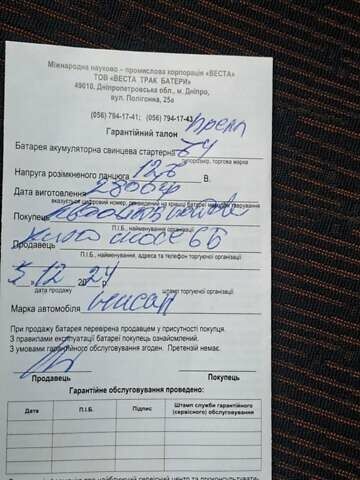 Міжнародна науково – промислова корпорація «ВЕСТА»
ТОВ «ВЕСТА ТРАК БАТЕРИ»
49010, Дніпропетровська обл., м. Дніпро,
вул. Полігонна, 25а
(056) 794-17-41; (056) 794-17-43
Гарантійний талон
Батарея акумуляторна свинцева стартерна 74
типорозмір, торгова марка
Напруга розімкненого ланцюга 12,6 В.
Дата виготовлення
вказується цифровий номер, приведений на кришці батареї маркування
Покупець
П.І.Б., найменування, адреса та телефон торгуючої організації
Продавець
П.І.Б., найменування торгуючої організації
5.12 2024 р.
дата продажу штамп торгуючої організації
Марка автомобіля Нисан
При продажу батарея перевірена продавцем у присутності покупця.
З правилами експлуатації батареї покупець ознайомлений.
З умовами гарантійного обслуговування згоден. Претензій немає.
Продавець Покупець
Гарантійне обслуговування проведено:
Дата П.І.Б. Підпис Штамп служби гарантійного (сервісного) обслуговування